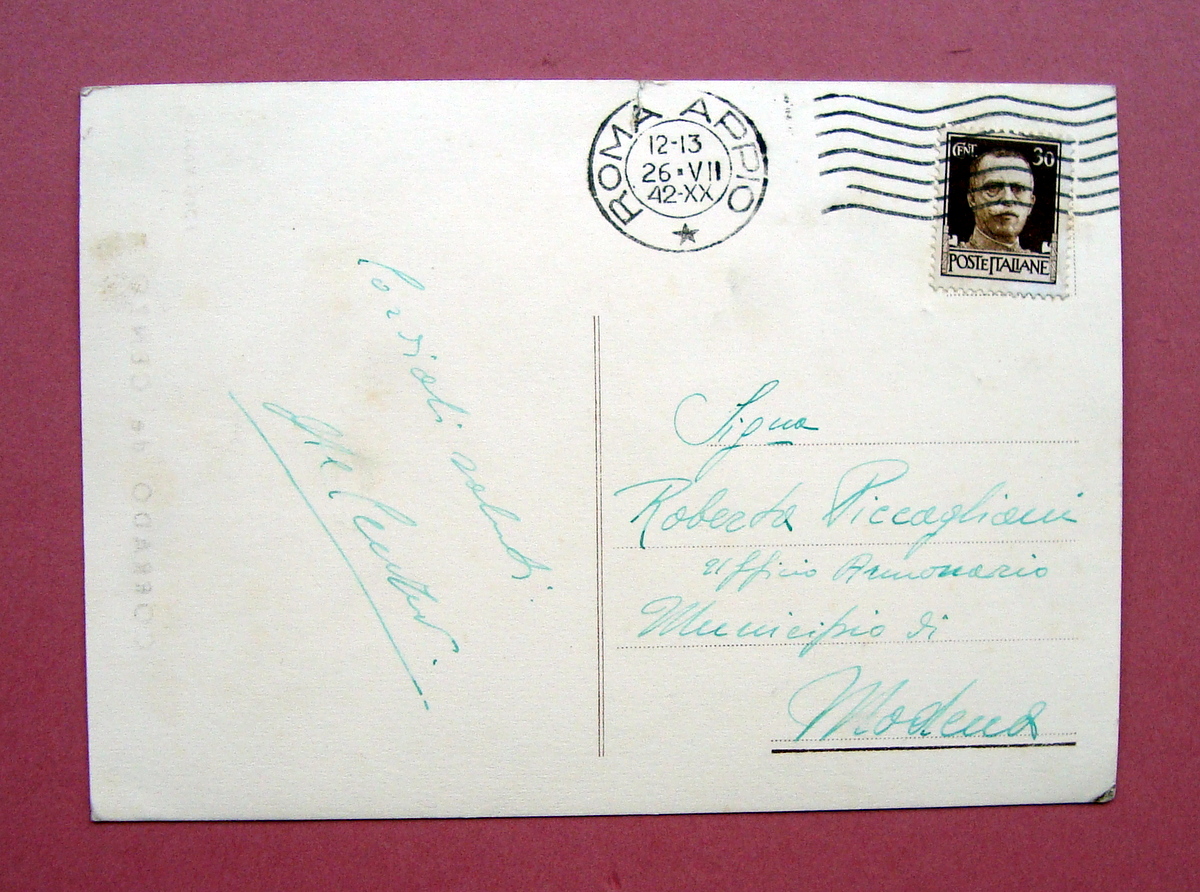 ROMA APPIO
12-13
26·VII
42-XX
CENT 30
POSTE ITALIANE
Cordiali saluti
Signa
Roberta Piccagliani
Ufficio Annonario
Municipio di
Modena
CORRADO de CENZO